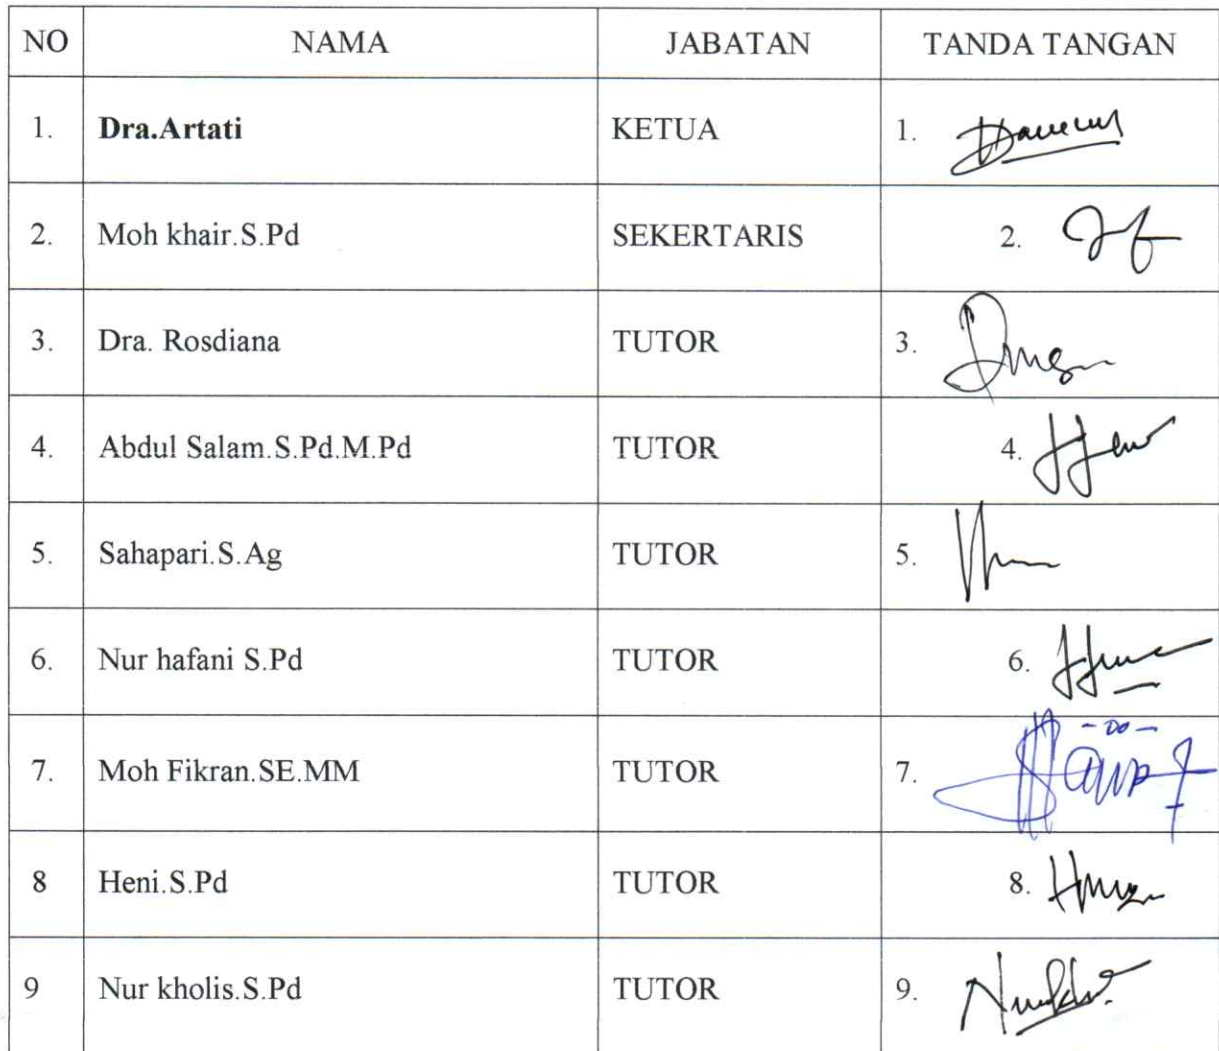 NO NAMA JABATAN TANDA TANGAN
1. Dra.Artati KETUA 1.
2. Moh khair.S.Pd SEKERTARIS 2.
3. Dra. Rosdiana TUTOR 3.
4. Abdul Salam.S.Pd.M.Pd TUTOR 4.
5. Sahapari.S.Ag TUTOR 5.
6. Nur hafani S.Pd TUTOR 6.
7. Moh Fikran.SE.MM TUTOR 7.
8 Heni.S.Pd TUTOR 8.
9 Nur kholis.S.Pd TUTOR 9.